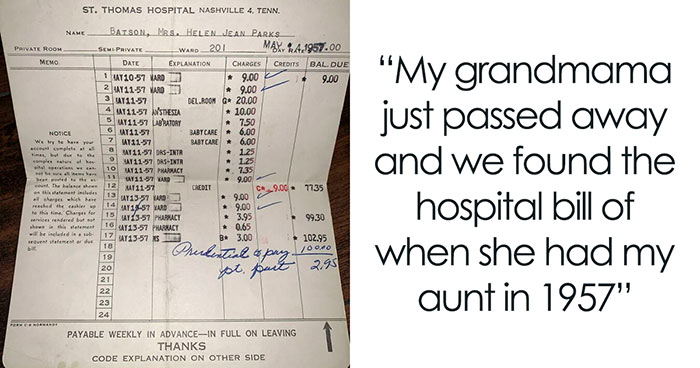 ST. THOMAS HOSPITAL NASHVILLE 4, TENN.
NAME BATSON, MRS. HELEN JEAN PARKS
PRIVATE ROOM SEMI-PRIVATE WARD 201 DAY RATE .00
MEMO. DATE EXPLANATION CHARGES CREDITS BAL. DUE
1 MAY10-57 WARD * 9.00 * 9.00
2 MAY11-57 WARD * 9.00
3 MAY11-57 DEL.ROOM G* 20.00
4 MAY11-57 AN'STHESIA * 10.00
5 MAY11-57 LAB'RATORY * 7.50
6 MAY11-57 BABY CARE * 6.00
7 MAY11-57 BABY CARE * 6.00
8 MAY11-57 DRS-INTR * 1.25
9 MAY11-57 DRS-INTR * 1.25
10 MAY11-57 PHARMACY * 7.35
11 MAY11-57 WARD * 9.00
12 MAY11-57 CREDIT C* 9.00 * 77.35
13 MAY13-57 WARD * 9.00
14 WARD * 9.00
15 MAY13-57 PHARMACY * 3.95 * 99.30
16 MAY13-57 PHARMACY * 0.65
17 MAY13-57 MS B* 3.00 * 102.95
18 Prudential to pay 100.00
19 pt. part 2.95
20
21
22
23
24
NOTICE
We try to have your
account complete at all
times, but due to the
complex nature of hos-
pital operations we can-
not be sure all items have
been posted to the ac-
count. The balance shown
on this statement includes
all charges which have
reached the cashier up
to this time. Charges for
services rendered but not
shown in this statement
will be included in a sub-
sequent statement or due
bill.
PAYABLE WEEKLY IN ADVANCE—IN FULL ON LEAVING
THANKS
CODE EXPLANATION ON OTHER SIDE
“My grandmama
just passed away
and we found the
hospital bill of
when she had my
aunt in 1957”